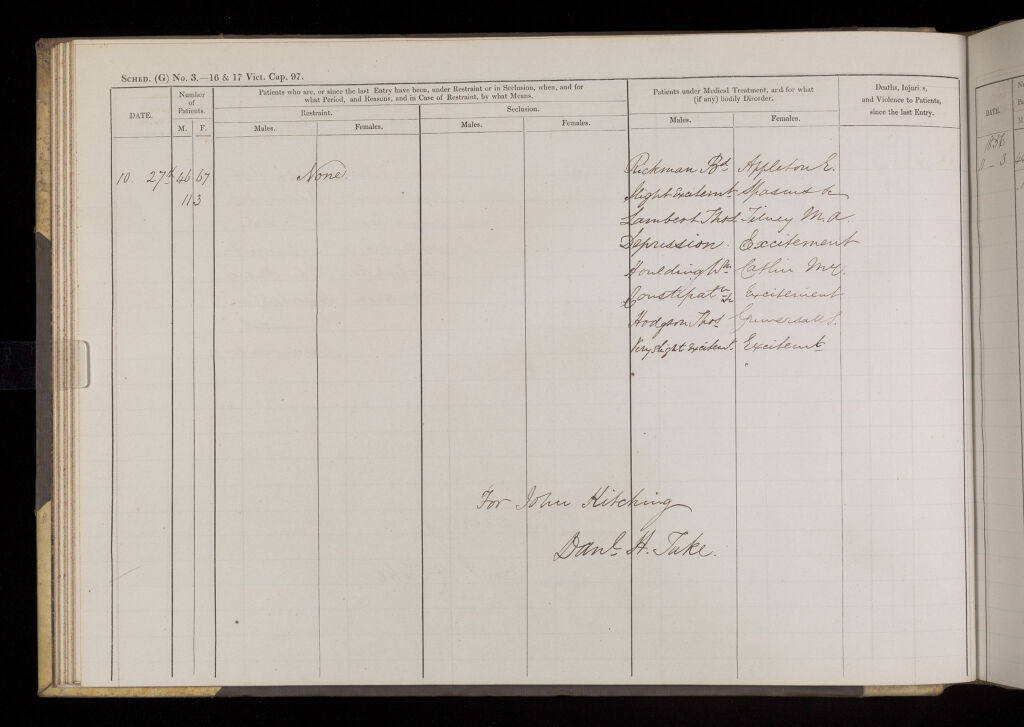 SCHED. (G) No. 3.—16 & 17 Vict. Cap. 97.
DATE.
Number of Patients.
M. F.
Patients who are, or since the last Entry have been, under Restraint or in Seclusion, when, and for
what Period, and Reasons, and in Case of Restraint, by what Means.
Restraint.
Seclusion.
Males.
Females.
Males.
Females.
Patients under Medical Treatment, and for what
(if any) bodily Disorder.
Males.
Females.
Deaths, Injuries,
and Violence to Patients,
since the last Entry.
10. 27th 46 67 None Rickman Appleton E.
113 Slight Excitemt Spasms &c
Lambert Thos Tilney M.A.
Depression. Excitement
Houlding Wm Catlin My.
Constipatn &c Excitement
Hodgson Thos S.
Very slight excitemt. Excitemt
For John Kitching
Danl. H. Tuke.
DATE.
M.
1856
11 – 3